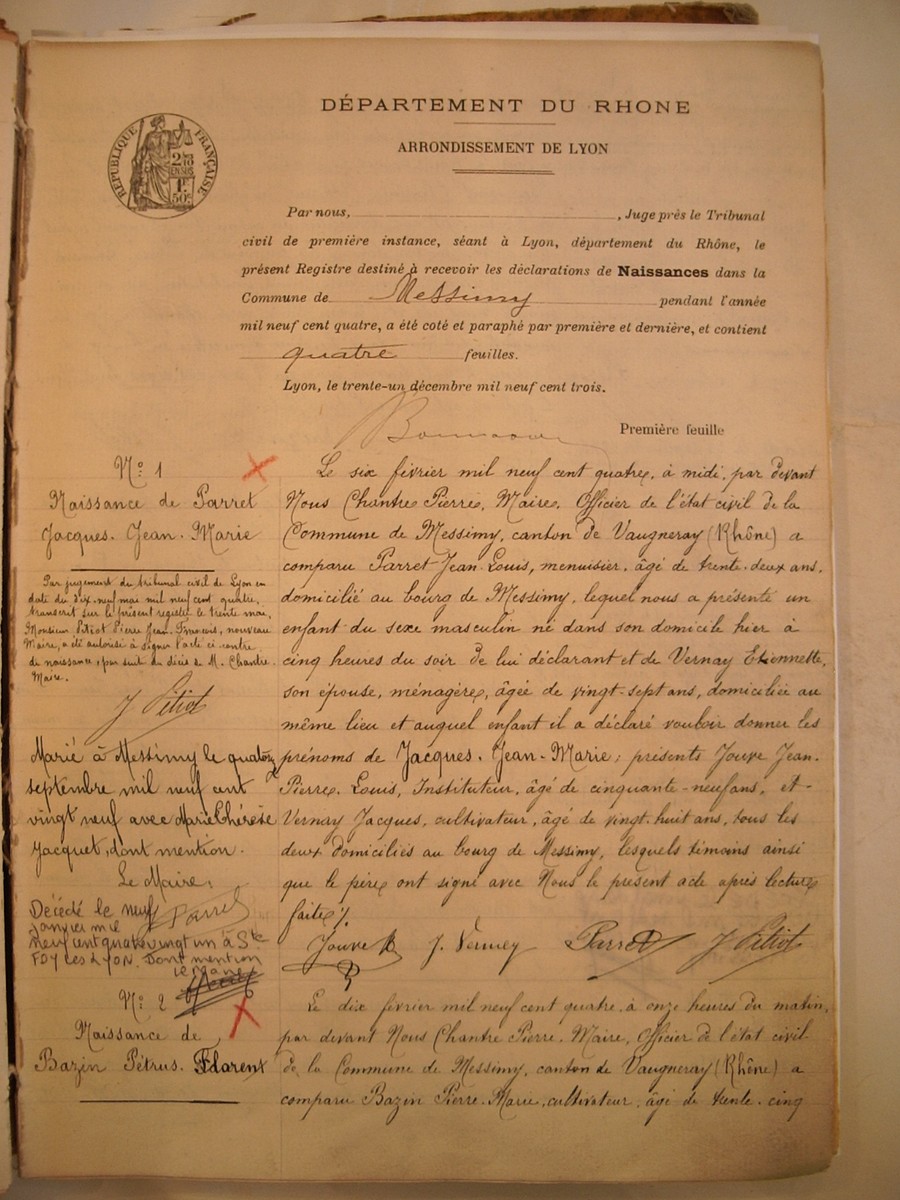 DÉPARTEMENT DU RHONE
ARRONDISSEMENT DE LYON
RÉPUBLIQUE FRANÇAISE
Par nous, , Juge près le Tribunal
civil de première instance, séant à Lyon, département du Rhône, le
présent Registre destiné à recevoir les déclarations de Naissances dans la
Commune de Messimy pendant l'année
mil neuf cent quatre, a été coté et paraphé par première et dernière, et contient
quatre feuilles.
Lyon, le trente-un décembre mil neuf cent trois.
Première feuille
N° 1
Naissance de Parret
Jacques. Jean. Marie
Par jugement du tribunal civil de Lyon en
date du dix-neuf mai mil neuf cent quatre,
transcrit sur le présent registre le trente mai,
Monsieur Pitiot Pierre Jean. François, nouveau
Maire, a été autorisé à signer l'acte ci contre
de naissance, par suit du décès de M. Chantre
Maire.
J Pitiot
Marié à Messimy le quatorze
septembre mil neuf cent
vingt neuf avec Marie Thérèse
Jacquet, dont mention.
Le Maire,
Parret
Décédé le neuf
janvier mil
neuf cent quatre vingt un à Ste
FOY LES LYON. Dont mention
le Maire
Le six février mil neuf cent quatre, à midi, par devant
Nous Chantre Pierre, Maire, Officier de l'état civil de la
Commune de Messimy, canton de Vaugneray (Rhône) a
comparu Parret Jean-Louis, menuisier, âgé de trente-deux ans,
domicilié au bourg de Messimy, lequel nous a présenté un
enfant du sexe masculin né dans son domicile hier à
cinq heures du soir de lui déclarant et de Vernay Etiennette,
son épouse, ménagère, âgée de vingt-sept ans, domiciliée au
même lieu et auquel enfant il a déclaré vouloir donner les
prénoms de Jacques. Jean-Marie; présents Jouve Jean.
Pierre. Louis, Instituteur, âgé de cinquante-neuf ans, et
Vernay Jacques, cultivateur, âgé de vingt-huit ans, tous les
deux domiciliés au bourg de Messimy, lesquels témoins ainsi
que le père ont signé avec Nous le présent acte après lecture
faite ./.
Jouve J. Vernay Parret J Pitiot
N° 2
Naissance de
Bazin Pétrus. Florent
Le dix février mil neuf cent quatre à onze heures du matin,
par devant Nous Chantre Pierre, Maire, Officier de l'état civil
de la Commune de Messimy, canton de Vaugneray (Rhône) a
comparu Bazin Pierre-Marie, cultivateur, âgé de trente-cinq